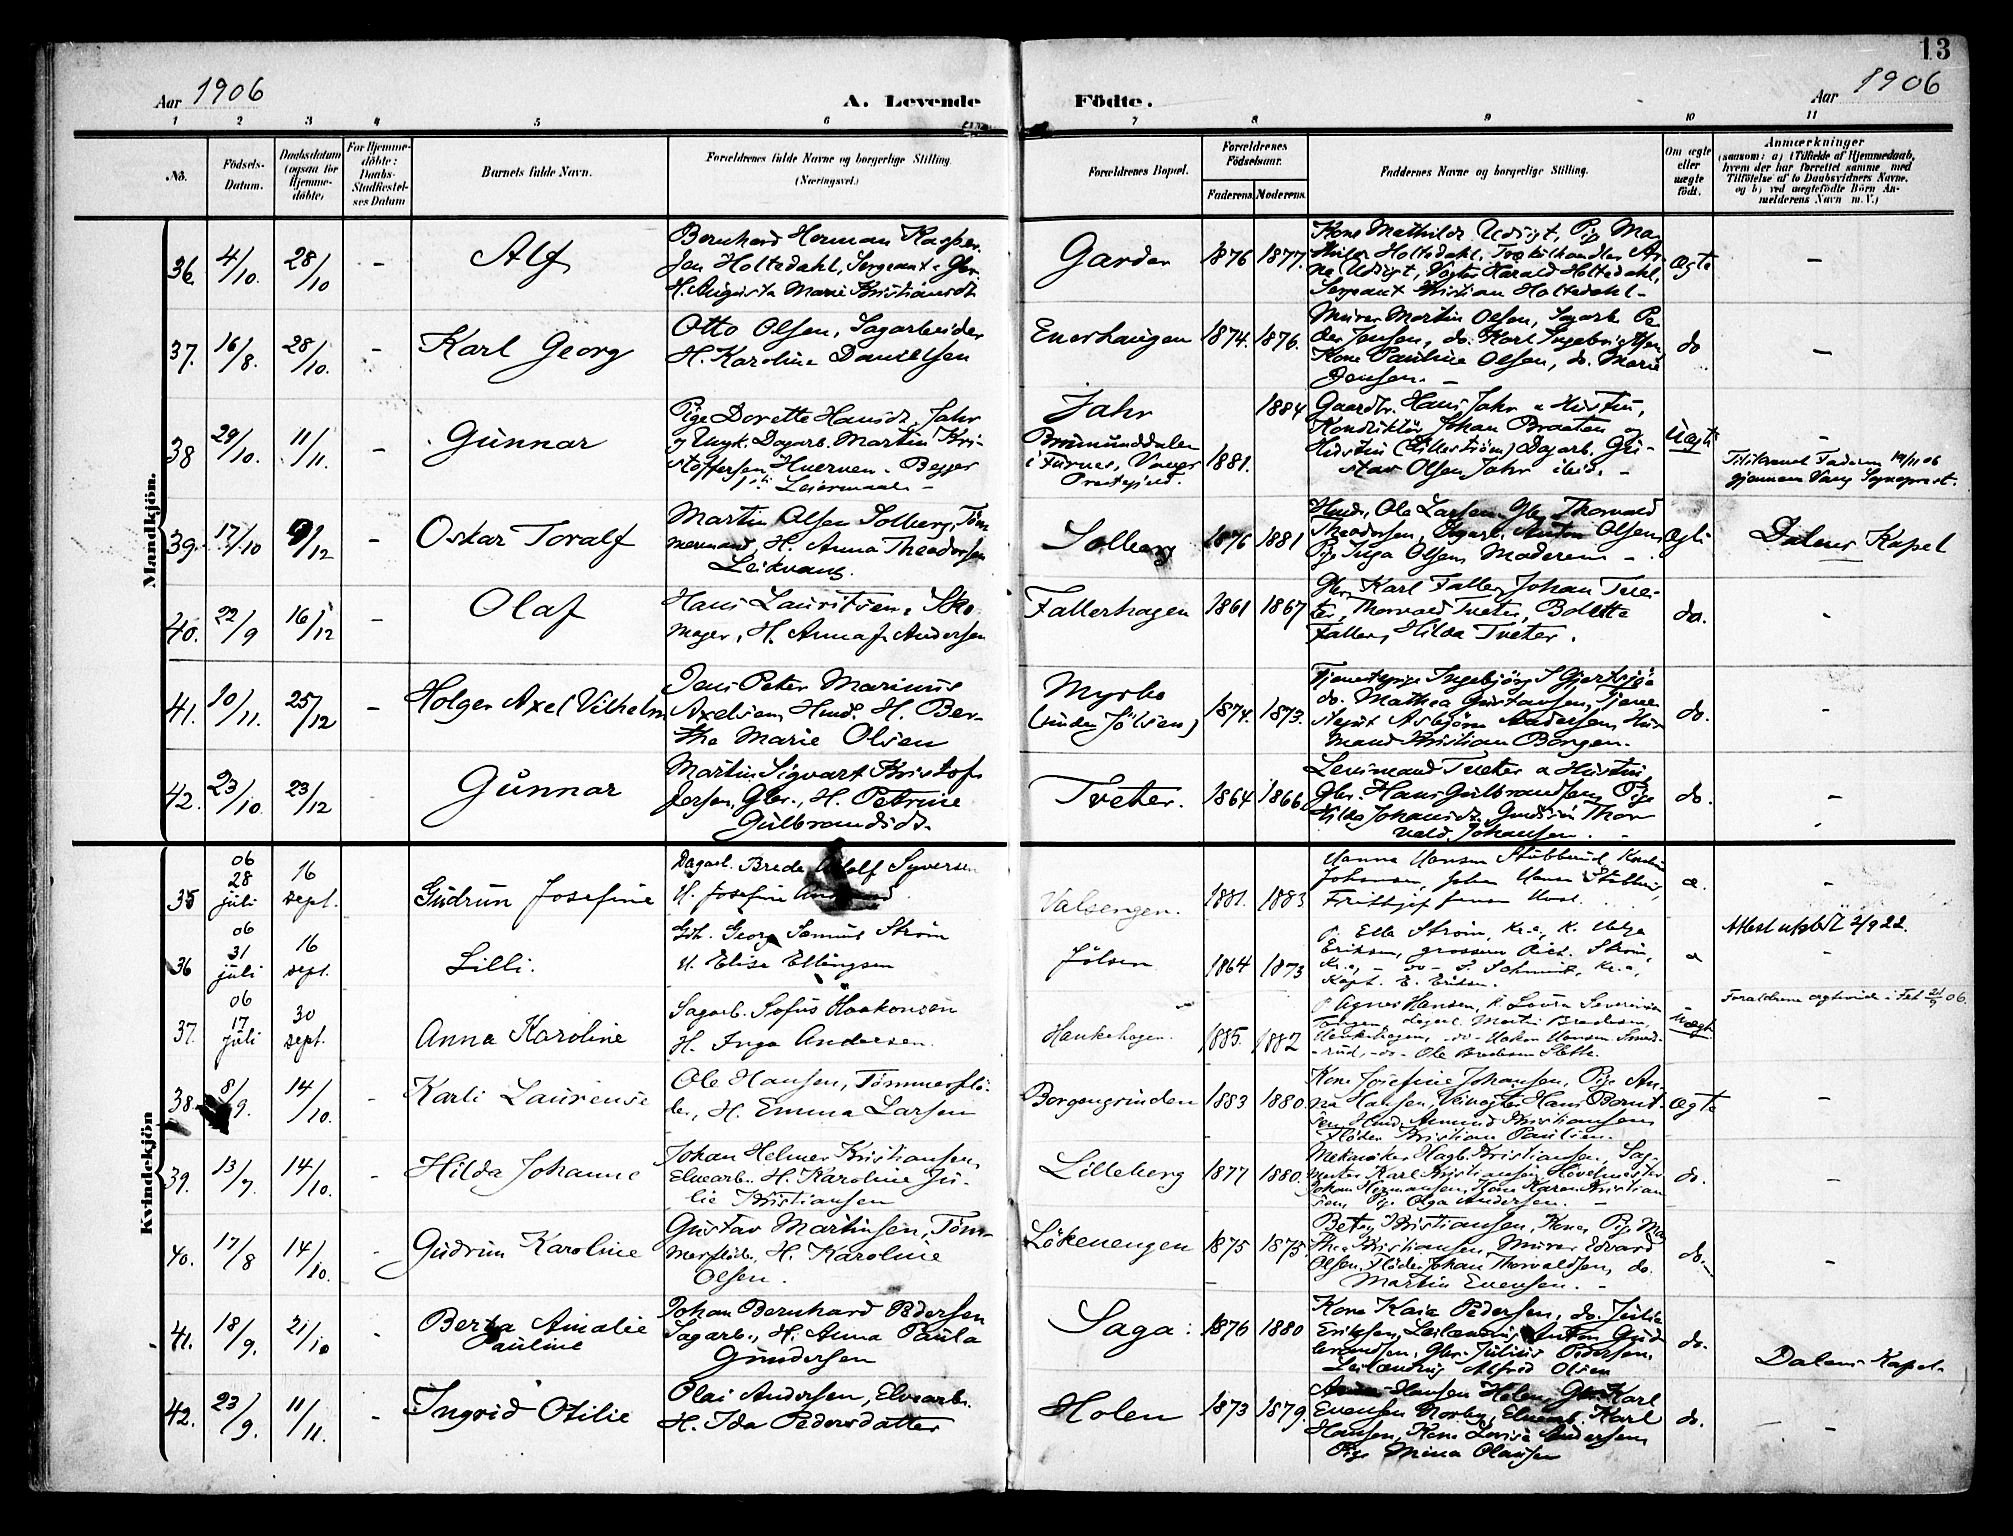 13
Aar 1906
A. Levende Födte.
Aar 1906
1 2 3 4 5 6 7 8 9 10 11
No.
Födsels-Datum.
Daabsdatum (ogsaa for Hjemme-döbte)
For Hjemme-döbte: Daabs-Stadfæstel-ses Datum
Barnets fulde Navn.
Forældrenes fulde Navne og borgerlige Stilling. (Næringsvei.)
Forældrenes Bopæl.
Forældrenes Födselsaar.
Faderens Moderens
Faddernes Navne og borgerlige Stilling.
Om ægte eller uægte födt.
Anmærkninger
(saasom: a) i Tilfælde af Hjemmedaab,
hvem der har forrettet samme, med
Tilföielse af to Daabsvidners Navne,
og b) ved uægtefödte Börn An-
melderens Navn m. V.)
Mandkjön.
36. 4/10. 28/10 - Alf
Bernhard Herman Kasper-
sen Holtedahl, Sergeant
H. Augusta Marie Kristiansdt
Garder 1876 1877.
Kone Mathilde Udigt, Pige
Holtedahl,
Udigt, Harald Holtedahl,
Sergeant Kristian Holtedahl -
ægte -
37. 16/8. 28/10. - Karl Georg
Otto Olsen, Sagarbeider
H. Karoline Danielsen
Enerhaugen 1874. 1876.
Murer Martin Olsen, Sagarb. Pe-
der Jensen, do. Karl
Kone Pauline Olsen, do. Marie
Jensen. -
do -
38 29/10. 11/11. - Gunnar
Pige Dorette Hansdt. Jahr
og Ungk. Dagarb. Martin Kri-
stoffersen Begges
1ste Leiermaal -
Jahr
Brumunddalen
i Furnes, Vangs
Prestegjeld.
1881. 1884
Gaardbr. Hans Jahr & Hustru,
Konduktör Johan Braaten og
Hustru (Lillestrøm) Dagarb. Gu-
stav Olsen Jahr ibid. -
Uægte -
Tilskrevet Faderen 19/11 06
gjennem Vang Sogneprest.
39. 17/10 9/12 - Oskar Toralf
Martin Olsen Solberg, Töm-
mermand, H. Anna Theodorsen
Leikvang.
Solberg 1876 1881
Husm. Ole Larsen, Gbr. Thorvald
Theodorsen, Dagarb. Anton Olsen,
Pige Inga Olsen, Moderen -
Ægte
Dalens Kapel
40. 22/9 16/12 - Olaf
Hans Lauritsen, Sko-
mager, H. Anna Andersen
Fallerhagen 1861 1867
Gbr. Karl Faller, Johan Tve-
ter, Thorvald Tveter, Bolette
Faller, Hilda Tveter.
do. -
41. 10/11. 25/12 - Holger Axel Vilhelm
Jens Peter Marinus
Axelsen, Husm. H. Ber-
the Marie Olsen
Myrbo
(under Jölsen)
1874. 1873.
Tjenestepige Ingebjörg
do. Mathea Gustavsen, Tjene-
stegut Asbjörn Andersen, Hus-
mand Kristian Borgen.
do. -
42. 23/10 23/12 Gunnar
Martin Sigvart Kristof-
fersen, Gbr., H. Petrine
Gulbrandsdt.
Tveter. 1864 1866
Lensmand Tveter & Hustru,
Gbr. Hans Gulbrandsen, Pige
Hilda Johansdt, Gudrun Thor-
vald Johansen. -
do. -
Kvindekjön
35 06 28 juli 16 sept. Gudrun Josefine
Dagarb. Brede Adolf Syversen
H. Josefine
Valsengen. 1881. 1883
Hanna Hansen Stubberud,
Johansen, Johan Hansen Stubberud,
Frithjof
æ. -
36 06 31 juli 16 sept. Lilli.
Georg Samuel Strøm
H. Elise Ellingsen
Jölsen 1864 1873
p. Elle Strøm, Kr.a, K. Helga
Eriksen, grosserer Rich. Strøm,
Kr.a, - do - S. Schmidt, Kr.a,
Kapt. E. Eriksen.
æ
Attest utstedt 2/9 22.
-
37. 06 17 juli 30 sept. Anna Karoline
Sagarb. Sofus Haakonsen
H. Inga Andersen.
Haukehagen. 1885. 1882
p. Agnes Hansen, K. Laura Severinsen
Dagarb. Martin Bredesen,
Haukehagen, - do - Hakon Hansen
-rud, - do - Ole Bredesen Slette.
Uægte
Forældrene ægteviede i Fet 21/9 06.
38. 8/9. 14/10. - Karli Laurense
Ole Hansen, Tömmerflö-
der, H. Emma Larsen
Borgengrinden 1883 1880
Kone Josefine Johansen, Pige An-
na Hansen, Veivogter Hans Bernt-
sen, Husm. Amund Kristiansen,
Flöder Kristian Paulsen.
ægte -
39. 13/7 14/10. - Hilda Johanne
Johan Helmer Kristiansen,
Elvearb. H. Karoline Ju-
lie Kristiansen
Lilleberg 1877 1880.
Mekaniker Hagb. Kristiansen, Sag-
mester Karl Kristiansen, Hövelmester
Johan Hermansen, Kone Karen Kristian-
sen, Pige Olga Andersen. -
do. -
40. 17/8 14/10. - Gudrun Karoline
Gustav Martinsen, Töm-
merflöder, H. Karoline
Olsen.
Lökenengen 1875 1875.
Betsy Kristiansen, Kone, Pige Ma-
thea Kristiansen, Murer Edvard
Olsen, Flöder Johan Thorvaldsen, do.
Martin Evensen. -
do. -
41. 18/9. 21/10 - Berta Amalie
Pauline
Johan Bernhard Pedersen
Sagarb., H. Anna Paula
Gundersen
Saga: 1876 1880
Kone Kaia Pedersen, do. Julie
Eriksen, Leilænding Anton Gud-
brandsen, Gbr. Julius Pedersen,
Leilænding Alfred Olsen
do.
Dalens Kapel
42. 23/9. 11/11. - Ingrid Otilie
Olai Andersen, Elvearb.
H. Ida Pedersdatter
Holen 1873 1879.
Hansen Holen, Gbr. Karl
Evensen Norby, Elvearb. Karl
Hansen, Kone Lovise Andersen,
Pige Mina Olausen
do. -